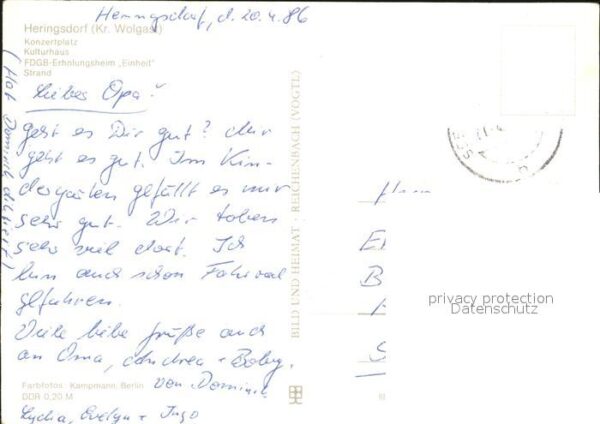 Heringsdorf, d. 20.4.86
Heringsdorf (Kr. Wolgast)
Konzertplatz
Kulturhaus
FDGB-Erholungsheim „Einheit"
Strand
(Hat Dominik diktiert)
Liebes Opa!
geht es Dir gut? Mir
geht es gut. Im Kin-
dergarten gefällt es mir
sehr gut. Wir toben
sehr viel dort. Ich
bin auch schon Fahrrad
gefahren.
Viele liebe Grüße auch
an Oma, Andrea + Boby.
von Dominik
Lydia, Evelyn + Ingo
Farbfotos: Kampmann, Berlin
DDR 0,20 M
BILD UND HEIMAT · REICHENBACH (VOGTL)
privacy protection
Datenschutz